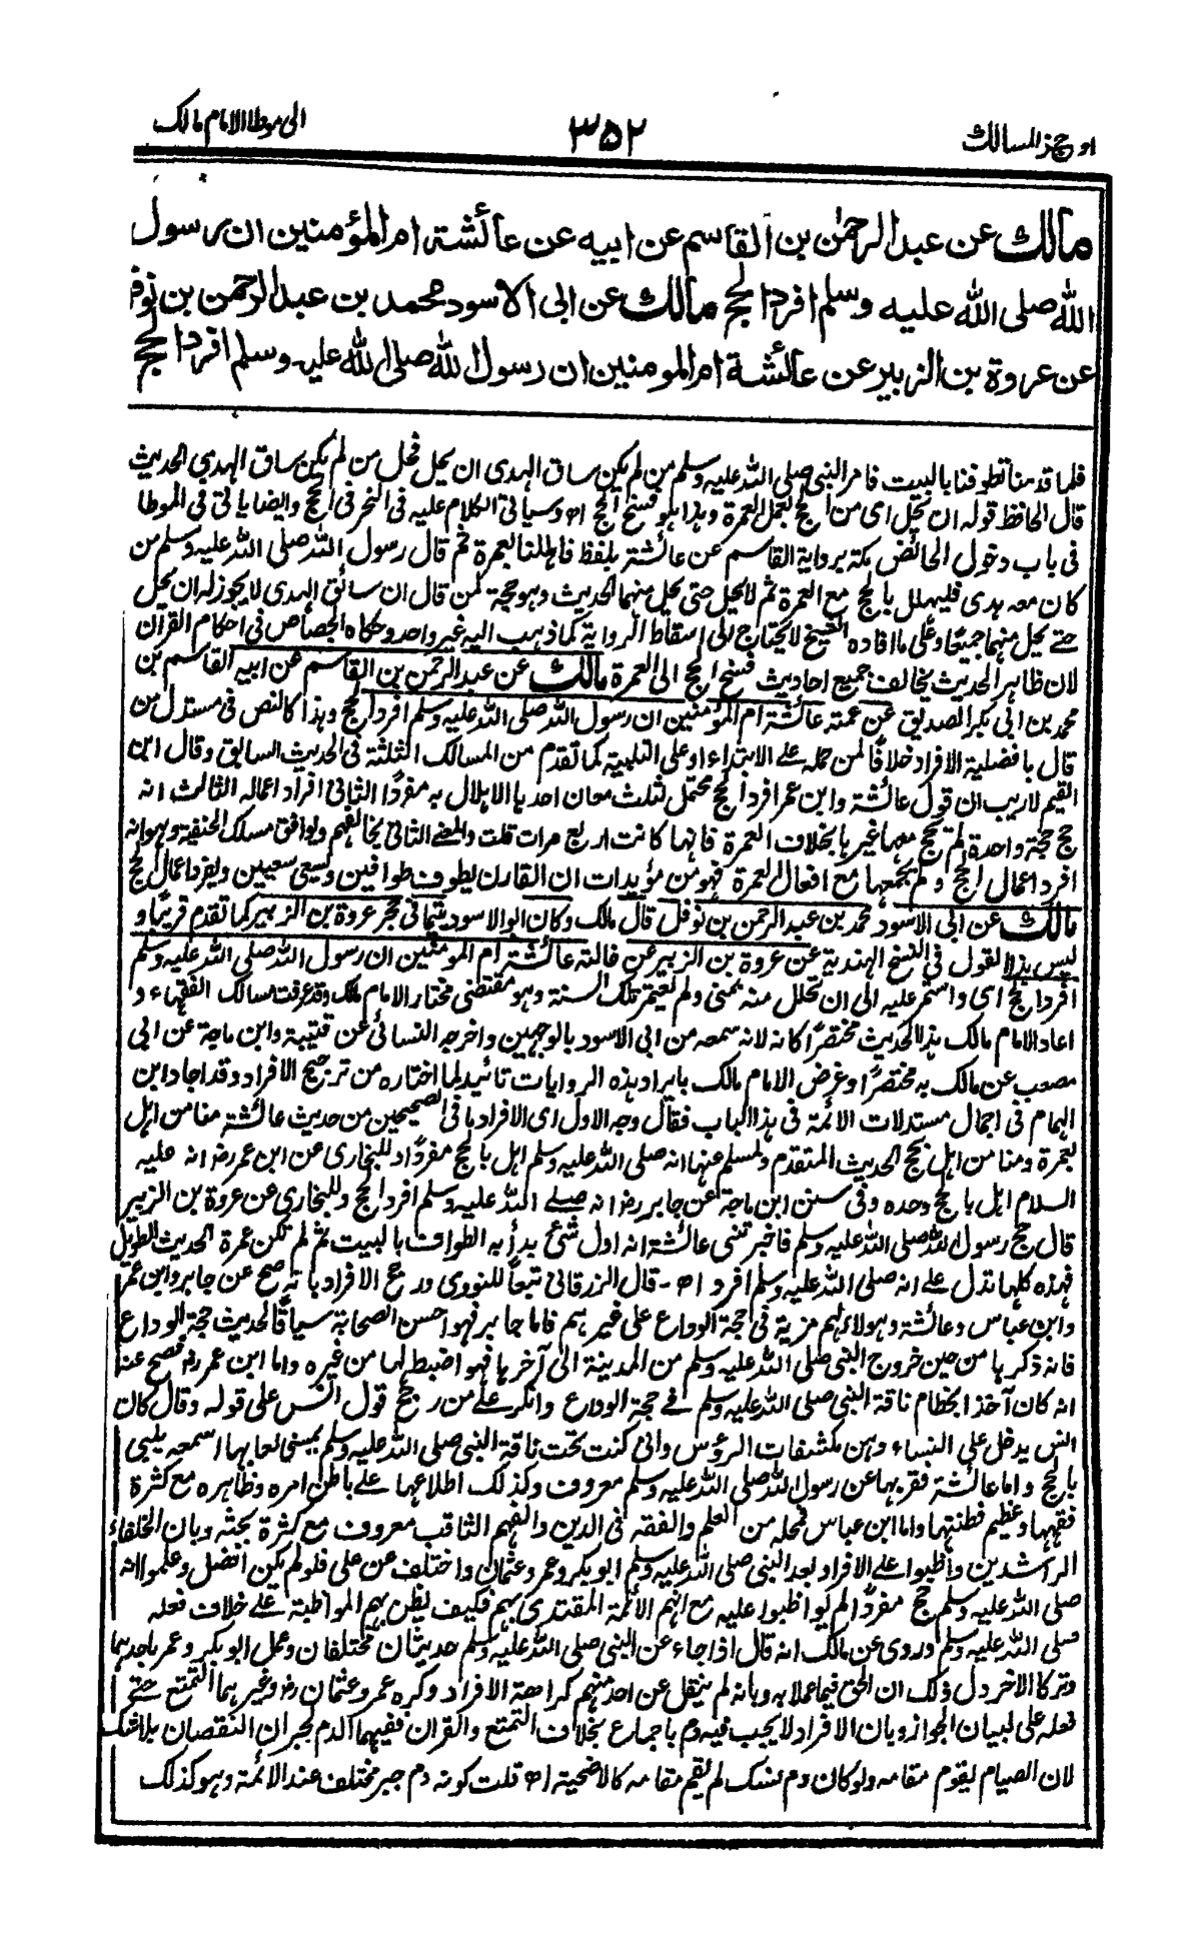 اوجز المسالك
٣٥٢
الى موطا الامام مالك
مالك عن عبد الرحمٰن بن القاسم عن ابيه عن عائشة ام المؤمنين ان رسول
الله صلى الله عليه وسلم افرد الحج مالك عن ابى الاسود محمد بن عبد الرحمن بن نوفل
عن عروة بن الزبير عن عائشة ام المومنين ان رسول الله صلى الله عليه وسلم افرد الحج
فلما قدمنا تطوفنا بالبيت فامر النبي صلى الله عليه وسلم من لم يكن ساق الهدى ان يحل فحل من لم يكن ساق الهدى الحديث
قال الحافظ قوله ان يحل اى من الحج بعمل العمرة وهذا هو فسخ الحج اھ وسياتى الكلام عليه فى النحر فى الحج وايضا ياتى فى الموطا
فى باب دخول الحائض مكة برواية القاسم عن عائشة بلفظ فاهللنا بعمرة ثم قال رسول الله صلى الله عليه وسلم من
كان معه هدى فليهلل بالحج مع العمرة ثم لا يحل حتى يحل منهما الحديث وهو حجة لمن قال ان سائق الهدى لا يجوز له ان يحل
حتے يحل منهما جميعًا وعلى ما افاده الشيخ لا يحتاج الى اسقاط الرواية كما ذهب اليه غير واحد وحكاه الجصاص فى احكام القرآن
لان ظاهر الحديث يخالف جميع احاديث فسخ الحج الى العمرة مالك عن عبد الرحمن بن القاسم عن ابيه القاسم بن
محمد بن ابى بكر الصديق عن عمته عائشة ام المؤمنين ان رسول الله صلى الله عليه وسلم افرد الحج وهذا كالنص فى مستدل من
قال بافضلية الافراد خلافًا لمن حمله على الابتداء او على التلبية كما تقدم من المسالك الثلثة فى الحديث السابق وقال ابن
القيم لاريب ان قول عائشة وابن عمر افرد الحج محتمل لثلث معان احدها الاهلال به مفردًا الثانى افراد اعماله الثالث انه
حج حجة واحدة لم يحج معها غيرها بخلاف العمرة فانها كانت اربع مرات قلت والمعنے الثانى يخالفهم ويوافق مسلك الحنفية وهو انه
افرد اعمال الحج ولم يجمعها مع افعال العمرة فهو من مؤيدات ان القارن يطوف طوافين ويسعى سعيين ويفرد اعمال الحج
مالك عن ابى الاسود محمد بن عبد الرحمن بن نوفل قال مالك وكان ابو الاسود يتيما فى حجر عروة بن الزبير كما تقدم قريبًا و
ليس هذا القول فى النسخ الهندية عن عروة بن الزبير عن خالته عائشة ام المومنين ان رسول الله صلى الله عليه وسلم
افرد الحج اى واستمر عليه الى ان تحلل منه بمنى ولم يعتمر تلك السنة وهو مقتضى مختار الامام مالك وقد عرفت مسالك الفقهاء و
اعاد الامام مالك هذا الحديث مختصرًا كانه لانه سمعه من ابى الاسود بالوجهين واخرجه النسائى عن قتيبة وابن ماجة عن ابى
مصعب عن مالك به مختصرًا وغرض الامام مالك بايراد هذه الروايات تائيد لما اختاره من ترجيح الافراد وقد اجاد ابن
الهمام فى اجمال مستدلات الائمة فى هذا الباب فقال وجه الاول اى الافراد ما فى الصحيحين من حديث عائشة منا من اهل
بعمرة ومنا من اهل بحج الحديث المتقدم ولمسلم عنها انه صلى الله عليه وسلم اهل بالحج مفردًا وللبخارى عن ابن عمر رضـ انه عليه
السلام اهل بالحج وحده وفى سنن ابن ماجة عن جابر رضـ انه صلے الله عليه وسلم افرد الحج وللبخارى عن عروة بن الزبير
قال حج رسول الله صلى الله عليه وسلم فاخبرتنى عائشة انه اول شئ بدأ به الطواف بالبيت ثم لم تكن عمرة الحديث الطويل
فهذه كلها تدل على انه صلى الله عليه وسلم افرد اھ - قال الزرقانى تبعًا للنووى ورجح الافراد بانه صح عن جابر وابن عمر
وابن عباس وعائشة وهؤلاء لهم مزية فى حجة الوداع على غيرهم فاما جابر فهو احسن الصحابة سياقًا لحديث حجة الوداع
فانه ذكرها من حين خروج النبى صلى الله عليه وسلم من المدينة الى آخرها فهو اضبط لها من غيره واما ابن عمر رضـ فصح عنه
انه كان آخذا بخطام ناقة النبى صلى الله عليه وسلم فى حجة الوداع وانكر على من رجح قول انس على قوله وقال كان
انس يدخل على النساء وهن مكشفات الرؤس وانى كنت تحت ناقة النبى صلى الله عليه وسلم يمسنى لعابها اسمعه يلبى
بالحج واما عائشة فقربها من رسول الله صلى الله عليه وسلم معروف وكذلك اطلاعها على باطن امره وظاهره مع كثرة
فقهها وعظيم فطنتها واما ابن عباس فمحله من العلم والفقه فى الدين والفهم الثاقب معروف مع كثرة بحثه وبان الخلفاء
الراشدين واظبوا على الافراد بعد النبى صلى الله عليه وسلم ابو بكر وعمر وعثمان واختلف عن على فلو لم يكن افضل وعلموا انه
صلى الله عليه وسلم حج مفردًا لم يواظبوا عليه مع انهم الائمة المقتدى بهم فكيف يظن بهم المواظبة على خلاف فعله
صلى الله عليه وسلم وروى عن مالك انه قال اذا جاء عن النبى صلى الله عليه وسلم حديثان مختلفان وعمل ابو بكر وعمر باحدهما
وتركا الاخر دل ذلك ان الحق فيما عملا به وبانه لم ينقل عن احد منهم كراهة الافراد وكره عمر وعثمان رضـ وغيرهما التمتع حتے
فعله على لبيان الجواز وبان الافراد لا يجب فيه دم باجماع بخلاف التمتع والقران ففيهما الدم لجبران النقصان بلا شك
لان الصيام يقوم مقامه ولو كان دم نسك لم يقم مقامه كالاضحية اھ قلت كونه دم جبر مختلف عند الائمة وهو كذلك